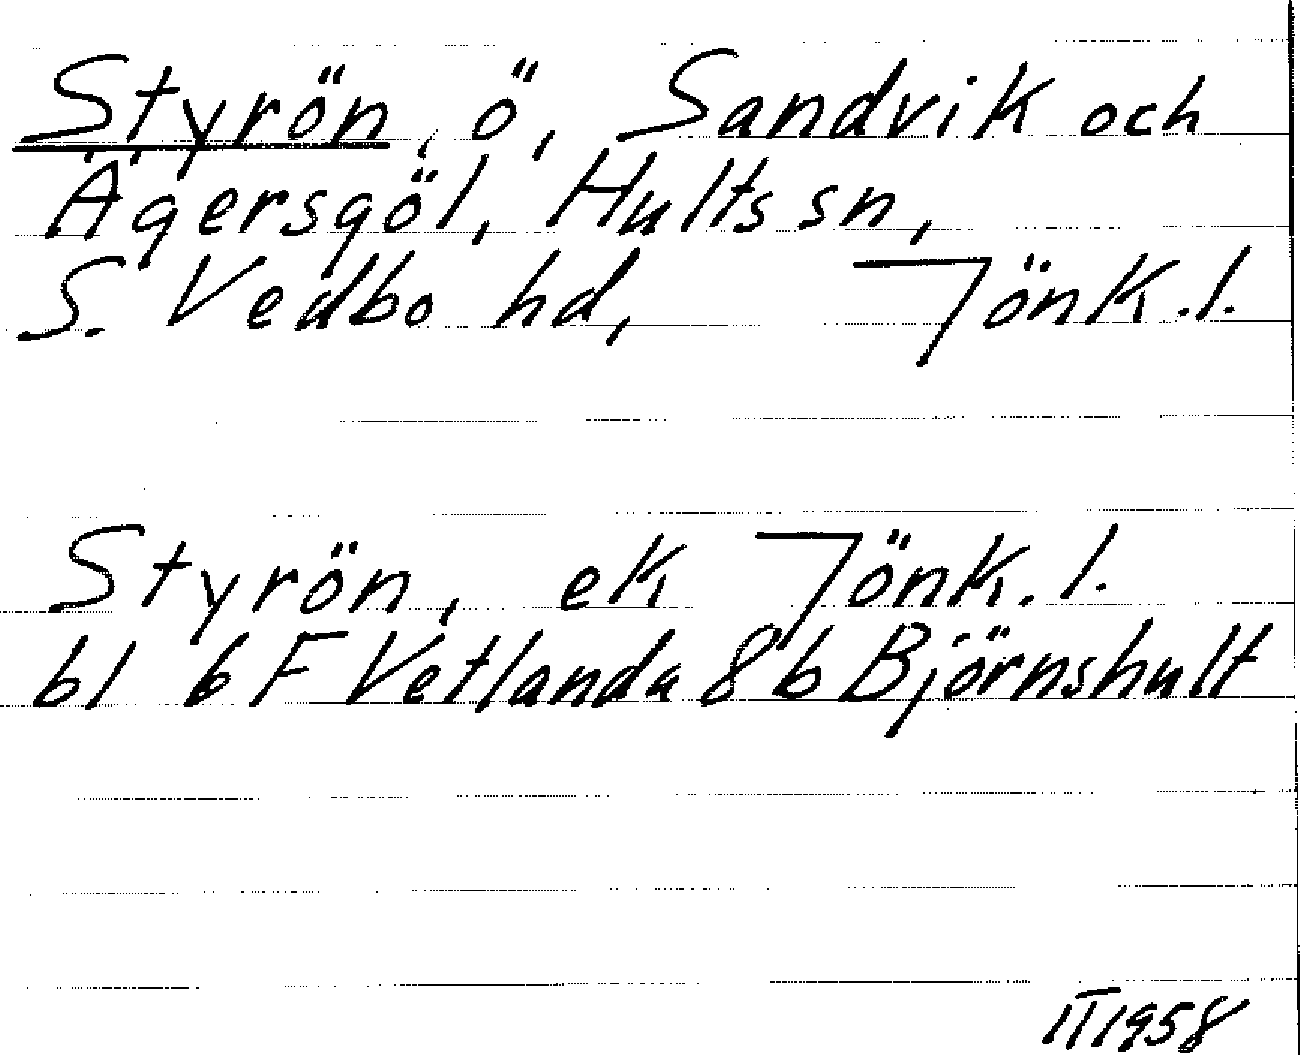 Styrön, ö, Sandvik och
Ägersgöl, Hults sn,
S. Vedbo hd, Jönk.l.
Styrön, ek Jönk.l.
bl 6 F Vetlanda 8 b Björnshult
II 1958